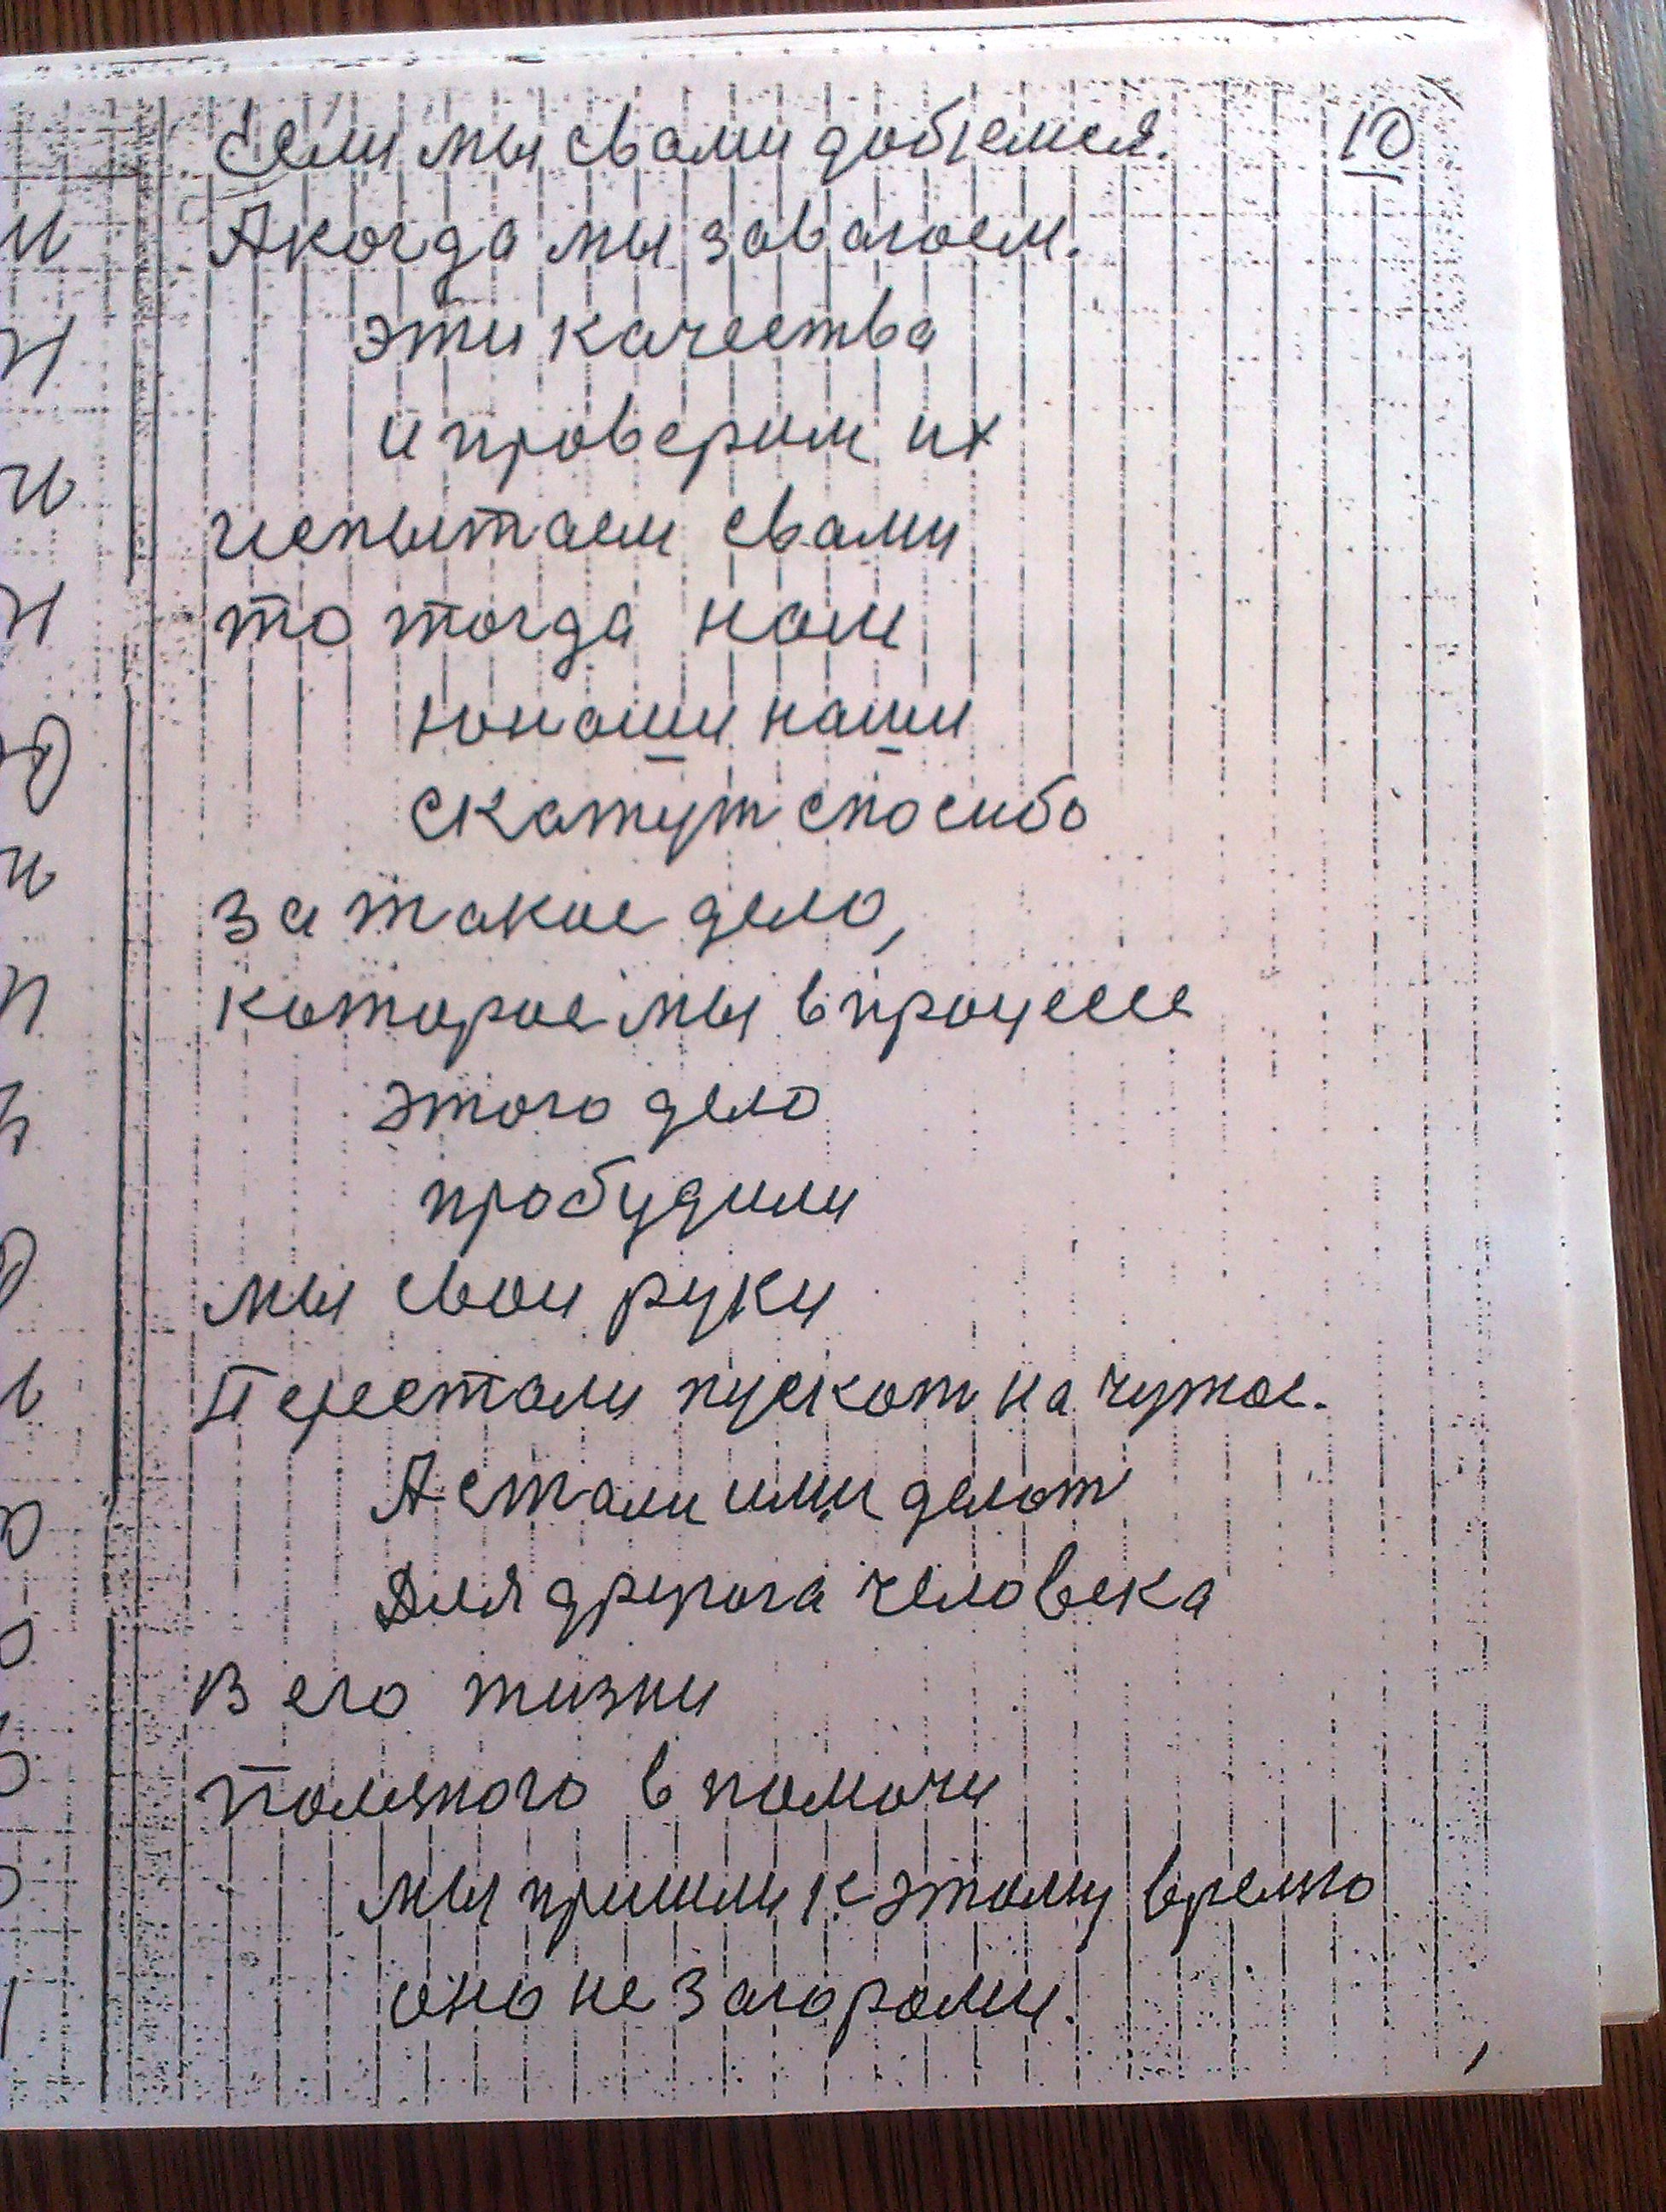 Если мы свами добъемся. 10
А когда мы
эти качества
и проверим их
испытаем свами
то тогда нам
юноши наши
скажут спосибо
за такое дело,
которое мы в процессе
этого дело
пробудили
мы свои руки
Перестали пускат на чужое.
А стали ими делот
Для другога человека
В его жизни
в помочи
мы пришли к этому времю
оно не за горами.